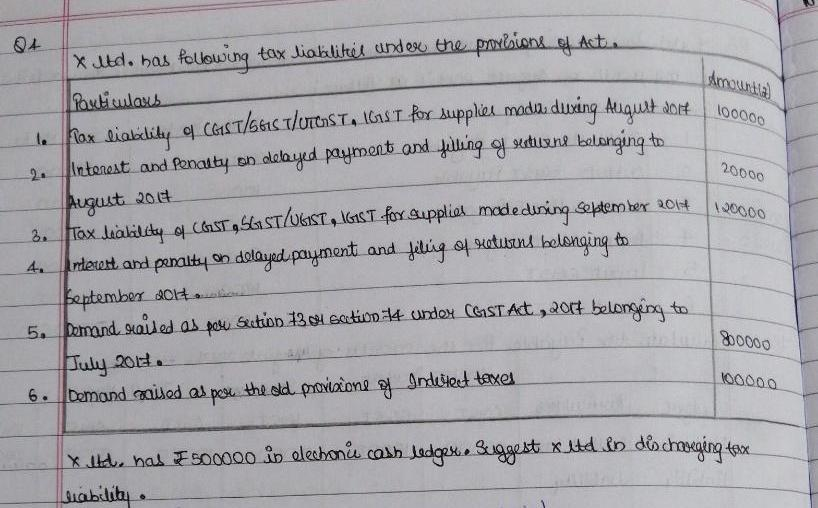 Q1
X Ltd. has following tax liabilities under the provisions of Act.
Particulars Amount(₹)
1. Tax liability of CGST/SGST/UTGST, IGST for supplies made during August 2017 100000
2. Interest and Penalty on delayed payment and filling of returns belonging to
August 2017 20000
3. Tax liability of CGST, SGST/UGST, IGST for supplies made during September 2017 120000
4. Interest and penalty on delayed payment and filing of returns belonging to
September 2017.
5. Demand raised as per section 73 or section 74 under CGST Act, 2017 belonging to
July 2017. 800000
6. Demand raised as per the old provisions of Indirect taxes 100000
X Ltd. has ₹ 500000 in elechonic cash ledger. Suggest X Ltd in discharging tax
liability.